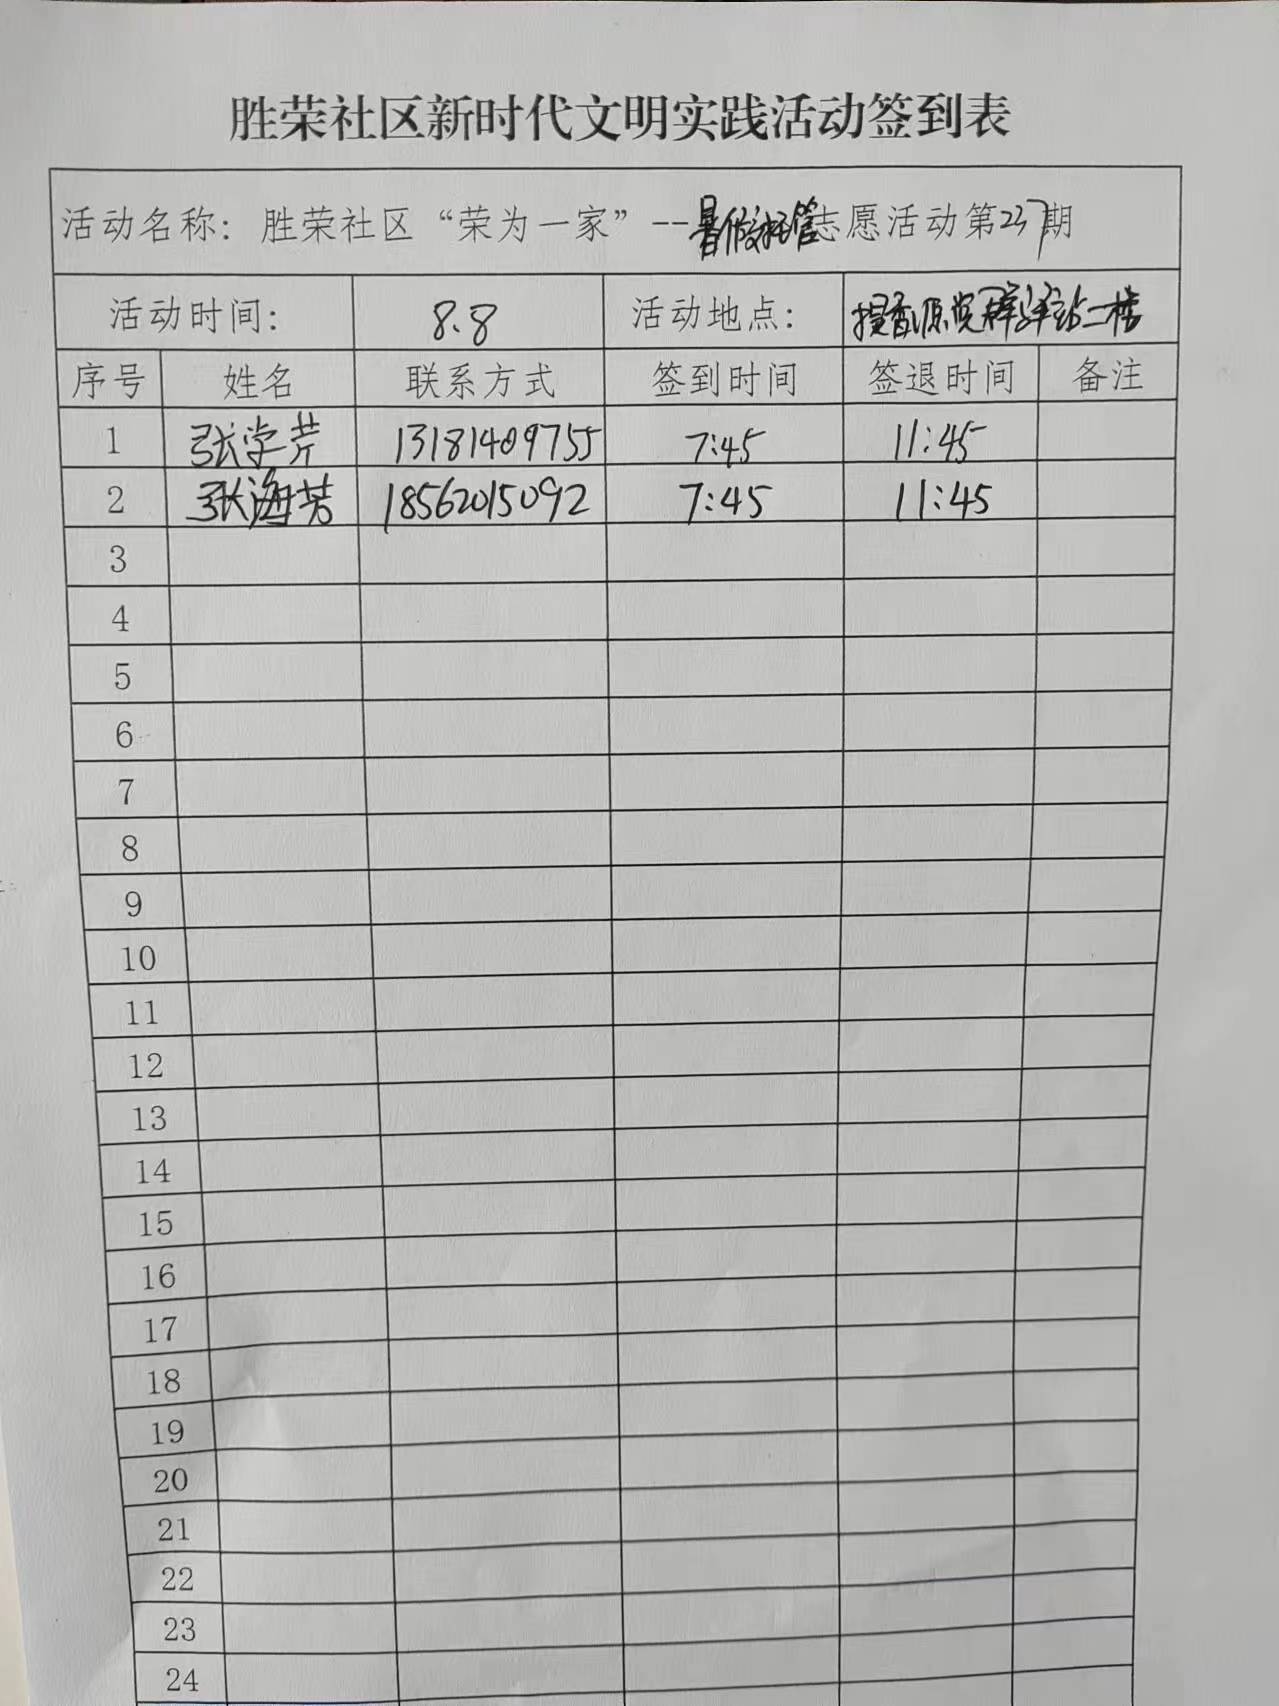 胜荣社区新时代文明实践活动签到表
活动名称：胜荣社区“荣为一家”--暑假托管志愿活动第237期
活动时间： 8.8 活动地点： 香源党群驿站二楼
序号 姓名 联系方式 签到时间 签退时间 备注
1 张学芹 13181409755 7:45 11:45
2 张海芳 18562015092 7:45 11:45
3
4
5
6
7
8
9
10
11
12
13
14
15
16
17
18
19
20
21
22
23
24